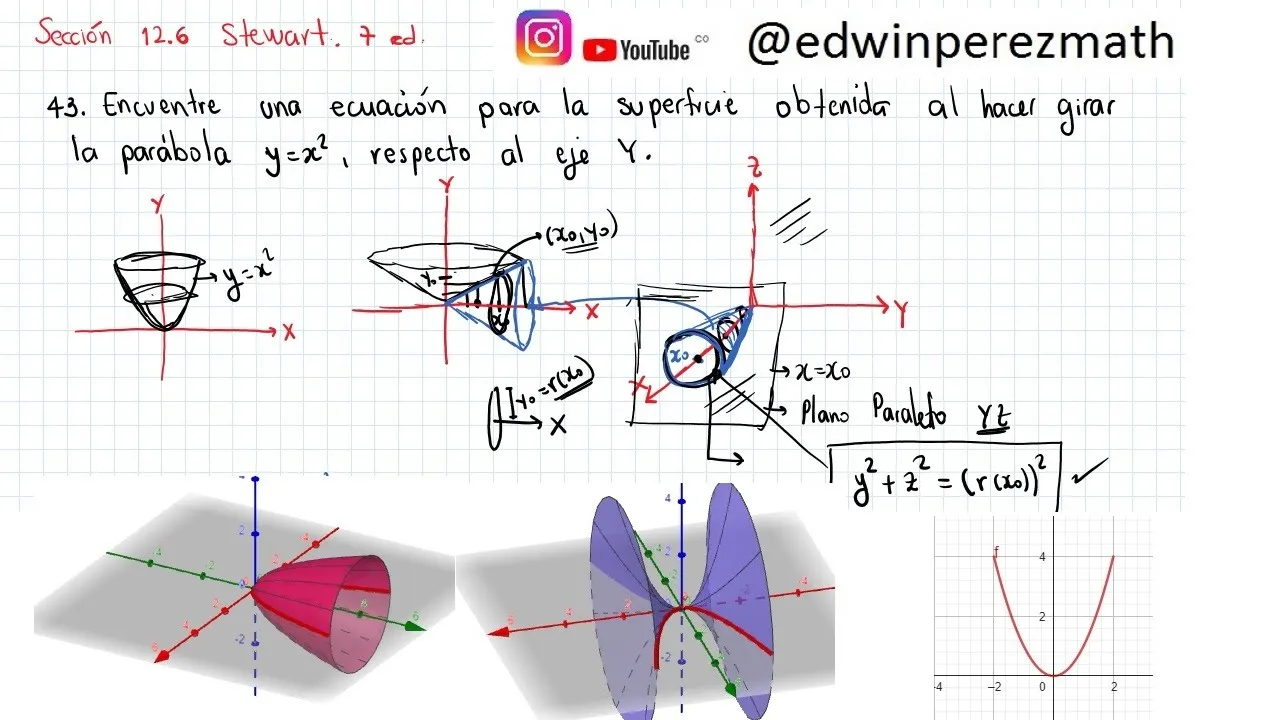 Sección 12.6 Stewart. 7 ed.
YouTube CO @edwinperezmath
43. Encuentre una ecuación para la superficie obtenida al hacer girar
la parábola y=x², respecto al eje Y.
Y
y=x²
X
Y
(x₀,y₀)
y₀
x₀
X
I y₀=r(x₀)
X
Z
Y
x₀
X
x=x₀
Plano Paralelo YZ
y²+z²=(r(x₀))²
4
2
0
-2
4
2
4
2
2
4
6
6
4
2
-2
4
2
-2
6
4
2
-2
-4
4
2
f
4
2
-4
-2
0
2